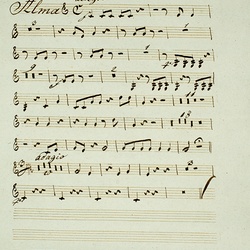 Alma
adagio